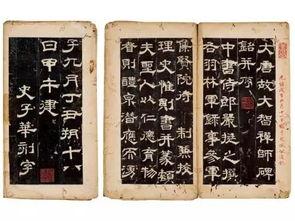 大唐故大智禪師碑
銘并序
中書侍郎嚴挺之撰
右羽林軍錄事參軍
集賢院待制兼校
理史惟則書并篆額
夫聖人以仁德育物
者則醴泉潛應不
子九月丁丑朔十八
日甲午建
史子華刻字